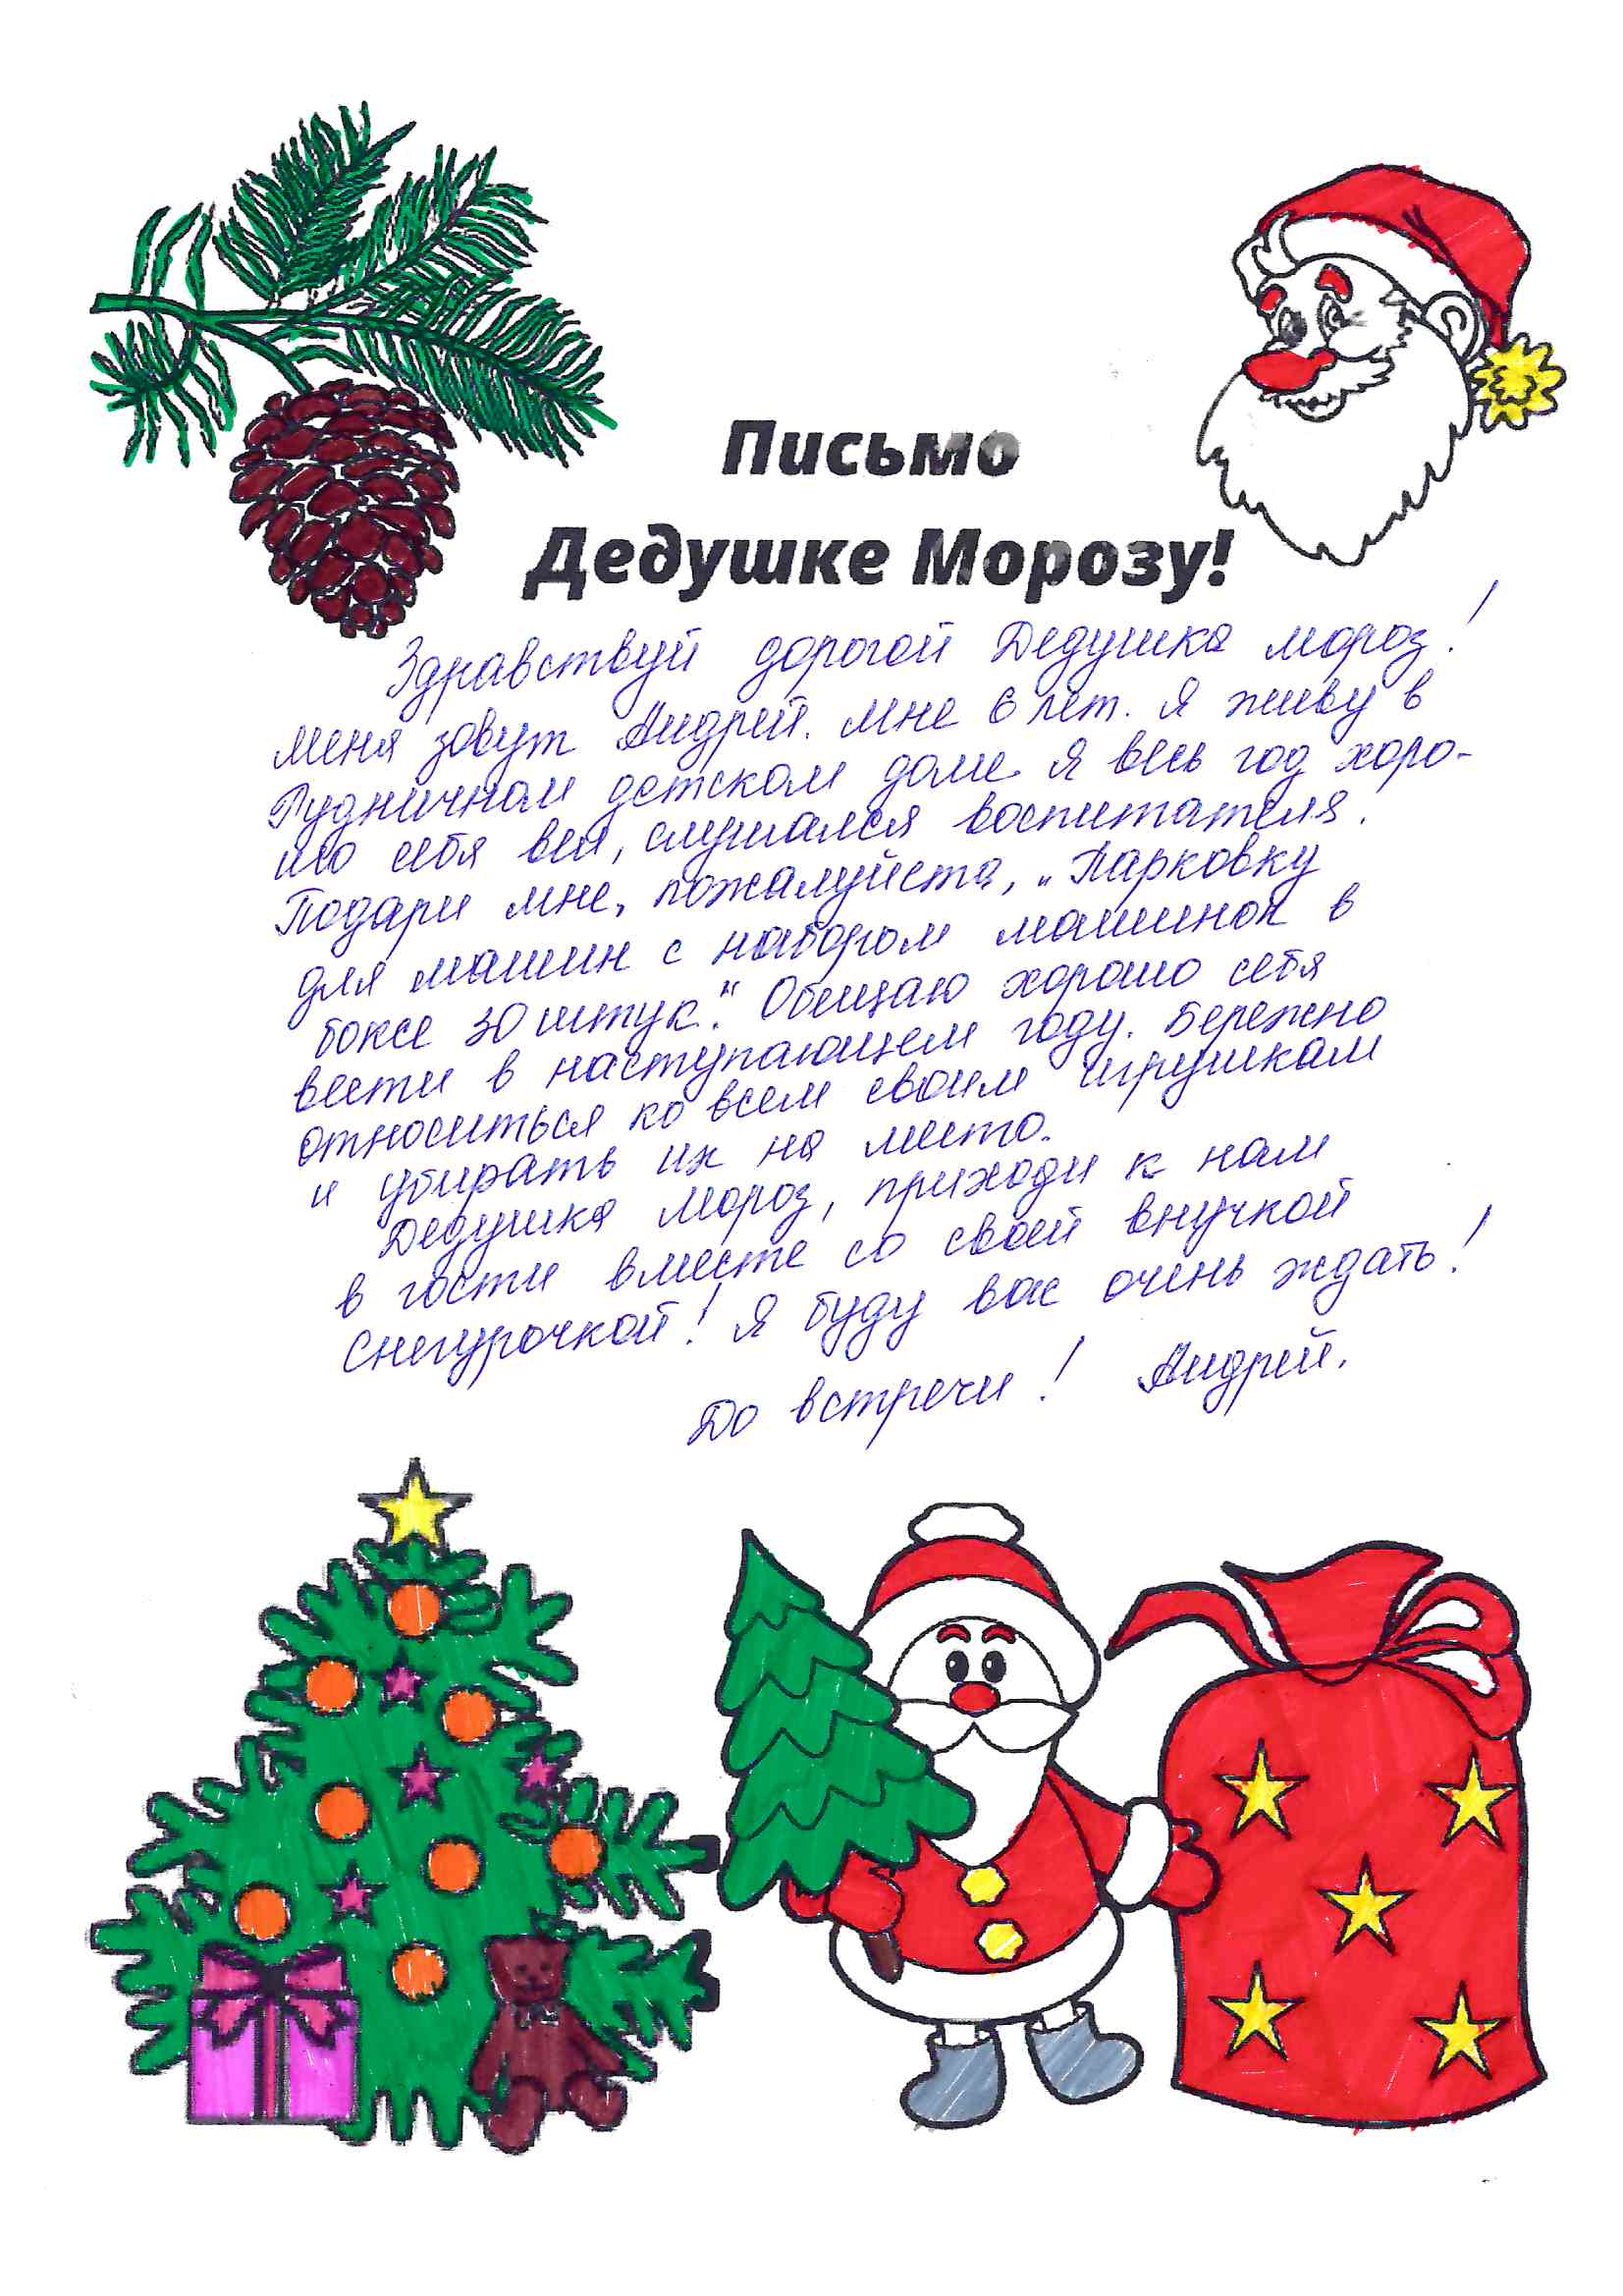 Письмо
Дедушке Морозу!
Здравствуй дорогой Дедушка мороз!
меня зовут Андрей. мне 6 лет. Я живу в
Рудничном детском доме. Я весь год хоро-
шо себя вел, слушался воспитателя.
Подари мне, пожалуйста, „Парковку
для машин с набором машинок в
боксе 30 штук." Обещаю хорошо себя
вести в наступающем году. Бережно
относиться ко всем своим игрушкам
и убирать их на место.
Дедушка Мороз, приходи к нам
в гости вместе со своей внучкой
Снегурочкой! Я буду вас очень ждать!
До встречи! Андрей.